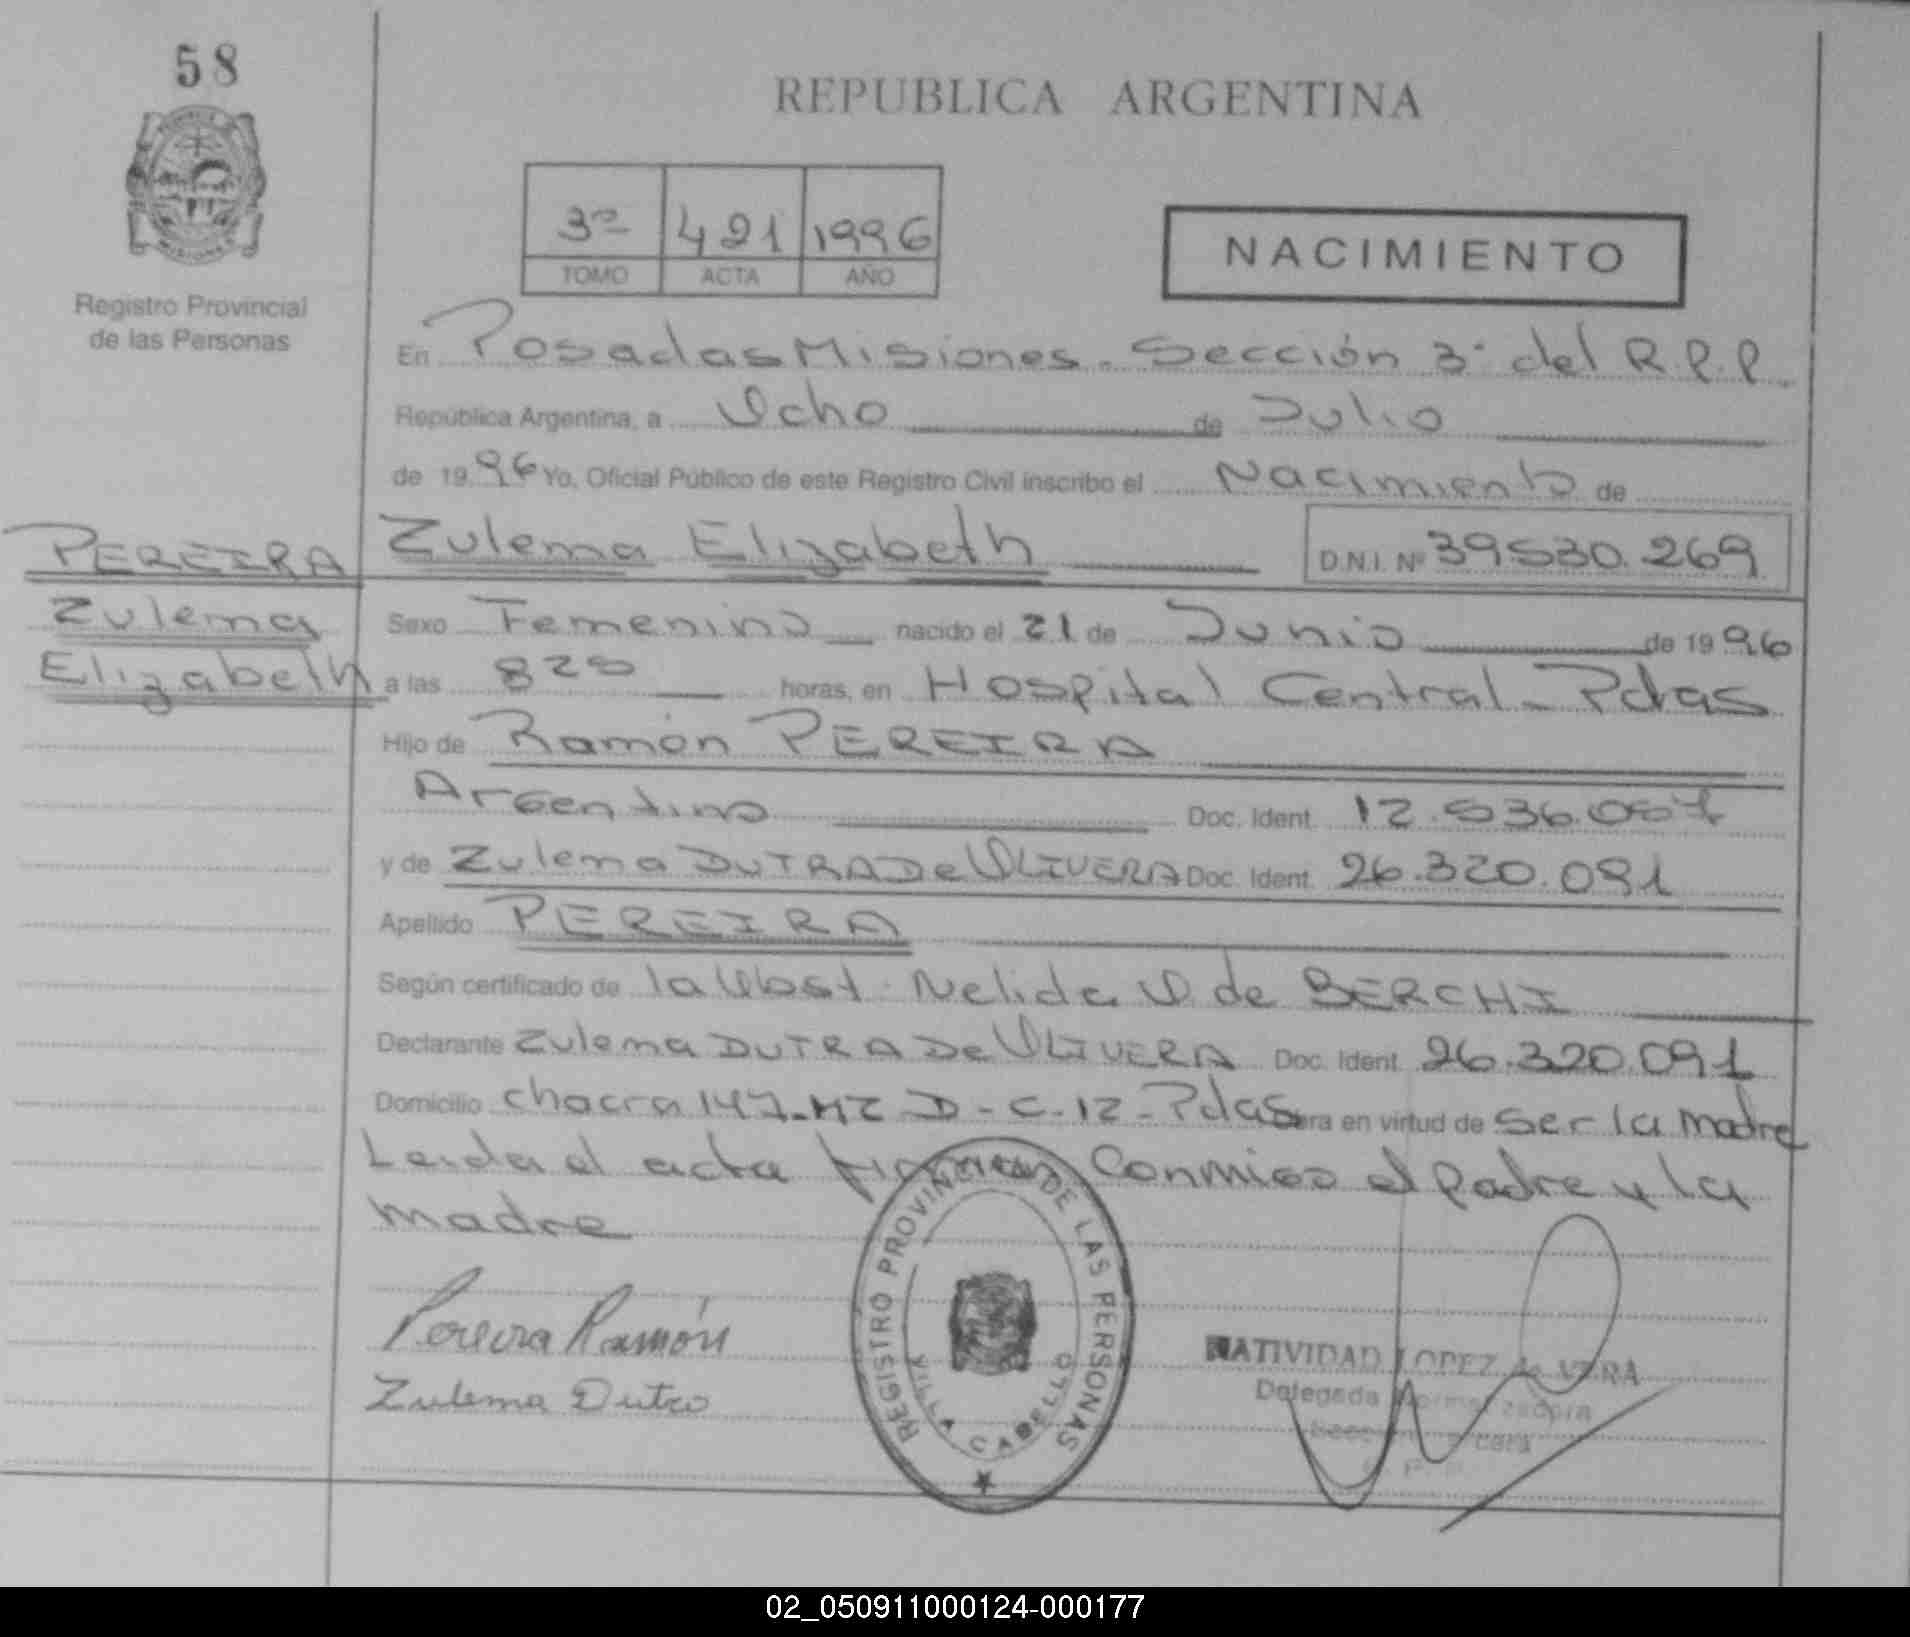 58
REPUBLICA ARGENTINA
Registro Provincial
de las Personas
3º 421 1996
TOMO ACTA AÑO
NACIMIENTO
En Posadas Misiones. Sección 3ª del R.P.P.
República Argentina, a Ocho de Julio
de 1996 Yo, Oficial Público de este Registro Civil inscribo el Nacimiento de
PEREIRA
Zulema
Elizabeth
Zulema Elizabeth D.N.I. Nº 39530.269
Sexo Femenino nacido el 21 de Junio de 1996
a las horas, en Hospital Central - Pdas
Hijo de Ramón PEREIRA
Argentino Doc. Ident. 12.536.
y de Zulema DUTRA De OLIVERA Doc. Ident. 26.320.091
Apellido PEREIRA
Según certificado de la Obst. Nelida O. de BERCHI
Declarante Zulema DUTRA De OLIVERA Doc. Ident. 26.320.091
Domicilio chacra 147-MZ D-C-12-Pdas en virtud de ser la madre
Leida el acta conmigo el padre y la
madre
Pereira Ramón
Zulema Dutra
REGISTRO PROVINCIAL DE LAS PERSONAS
VILLA CABELLO
NATIVIDAD LOPEZ de VERA
Delegada
02_050911000124-000177